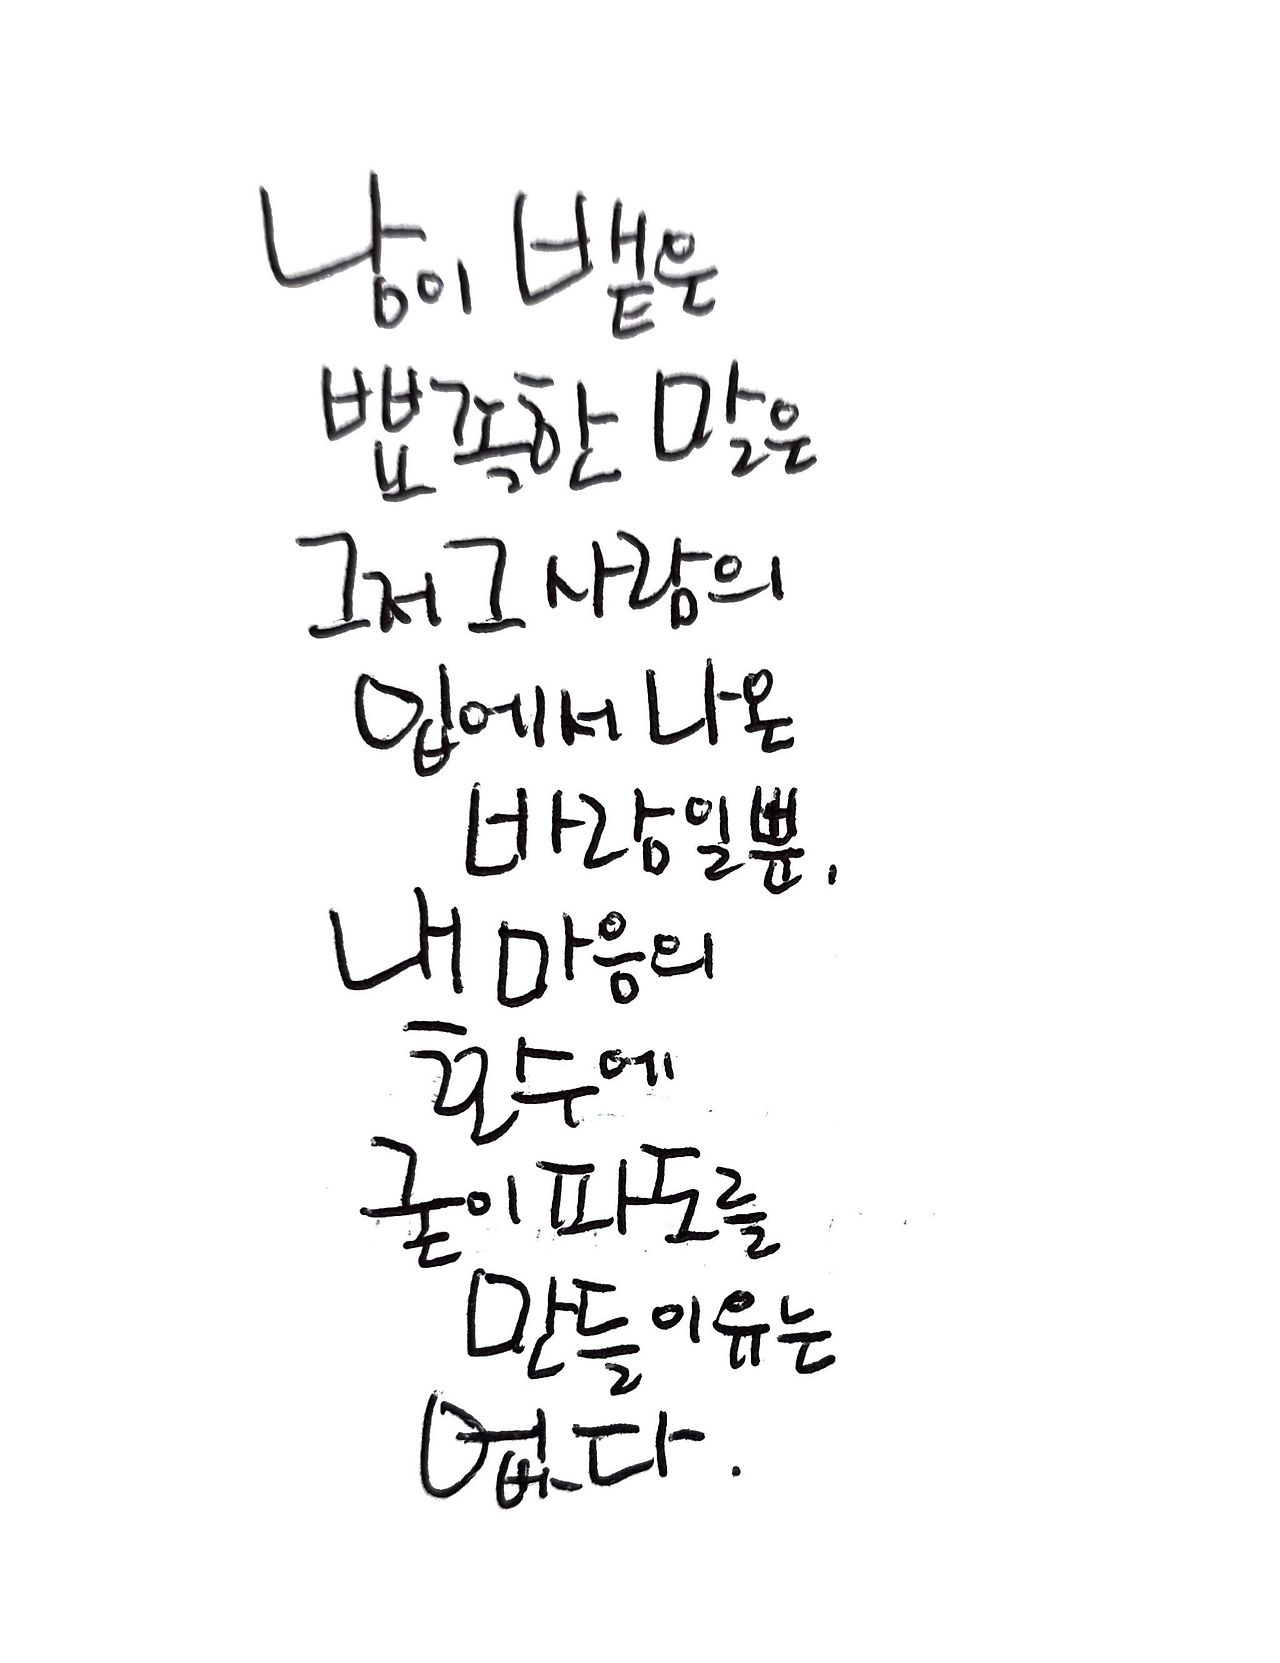 남이 뱉은
뾰족한 말은
그저 그 사람의
입에서 나온
바람일뿐,
내 마음의
호수에
굳이 파도를
만들 이유는
없다.